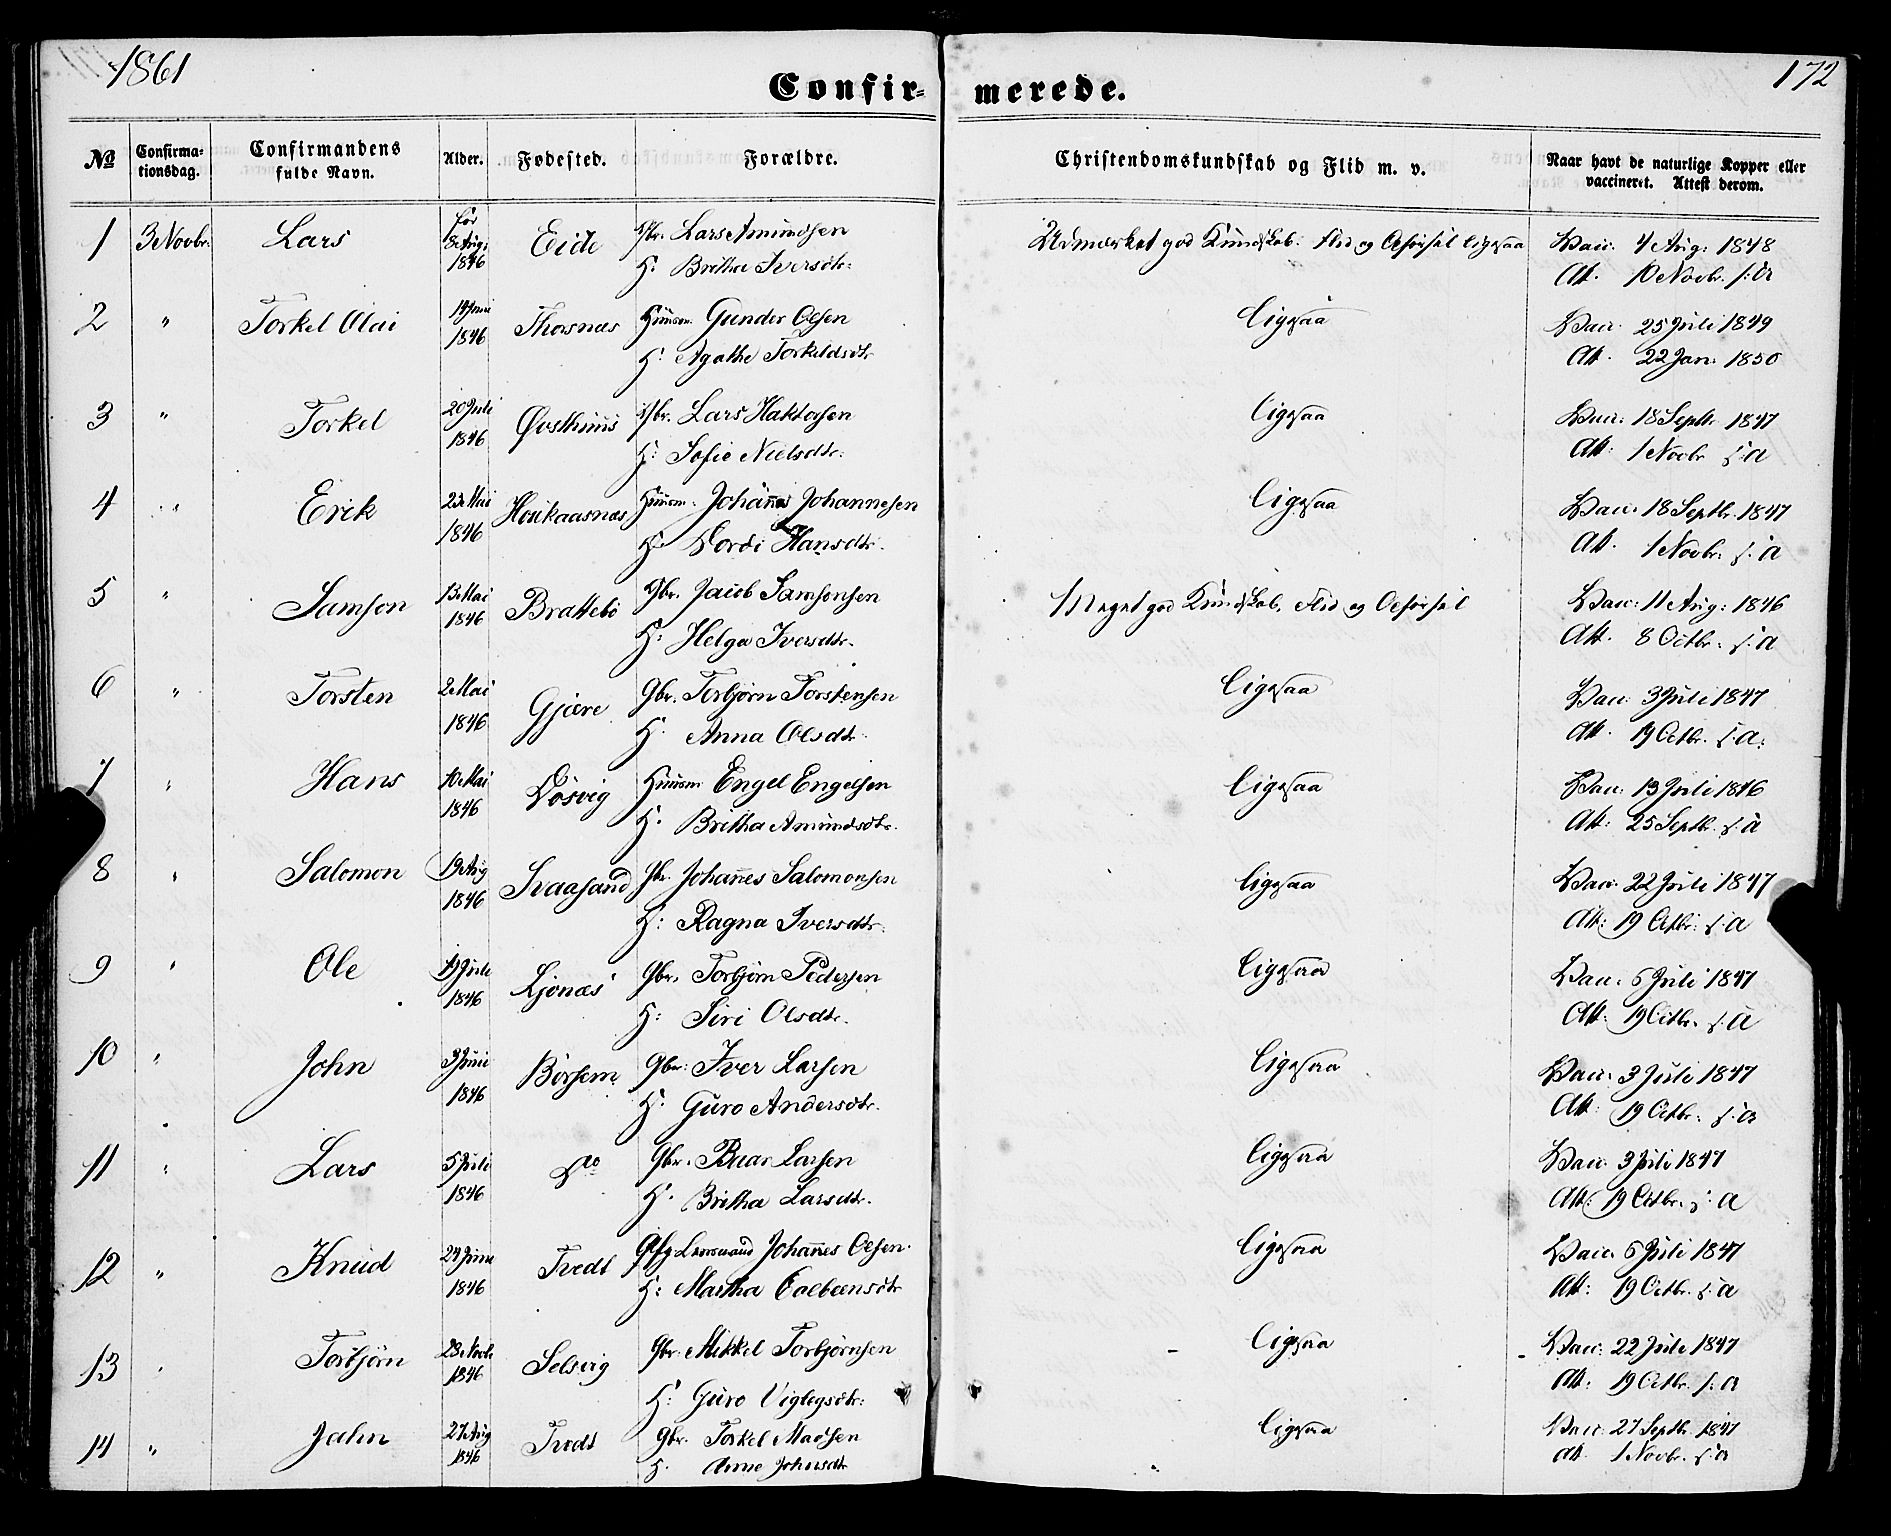 1861
172
Confir- merede.
№ Confirmationsdag. Confirmandens fulde Navn. Alder. Fødested. Forældre. Christendomskundskab og Flid m. v. Naar havt de naturlige Kopper eller vaccineret. Attest derom.
1 3 Novbr. Lars 1846 Eide Gbr. Lars Amundsen Udmærket god Kundskab. Flid og Opførsel ligesaa Vacc. 4 Aug: 1848
H: Britha Iversdtr: Att. 10 Novbr. s: a
2 " Torkel Olai 14 Juni 1846 Thorsnæs Huusm. Gunder Olsen Ligesaa Vacc. 25 Juli 1849
H: Agathe Torkeldsdtr Att. 22 Jan: 1850
3 " Torkel 20 Juli 1846 Østhuus Gbr. Lars Haktorsen Ligesaa Vacc: 18 Septbr 1847
H: Sofie Nielsdtr: Att: 1 Novbr s: a
4 " Erik 23 Mai 1846 Houkaasnæs Huusm. Johannes Johannesen Ligesaa Vacc: 18 Septbr. 1847
H: Dordi Hansdtr. Att. 1 Novbr: s: a
5 " Samson 13 Mai 1846 Brattebö Gbr. Jacob Samsonsen Meget god Kundskab, Flid og Opførsel Vacc: 11 Aug: 1846
H: Helga Iversdtr. Att. 8 Octbr: s: a
6 " Torsten 2 Mai 1846 Gjære Gbr. Torbjørn Torstensen Ligesaa Vacc: 3 Juli 1847
H: Anna Olsdtr. Att. 19 Octbr. s: a:
7 " Hans 10 Mai 1846 Dösvig Huusm Engel Engelsen Ligesaa Vacc: 13 Juli 1846
H: Britha Amundsdtr. Att: 25 Septbr. s: a
8 " Salomon 19 Aug 1846 Svaasand Gbr. Johannes Salomonsen Ligesaa Vacc: 22 Juli 1847
H: Ragna Iversdtr. Att: 19 Octbr: s: a
9 " Ole 19 Juli 1846 Ljönæs Gbr. Torbjørn Pedersen Ligesaa Vacc. 6 Juli 1847
H: Siri Olsdtr. Att: 19 Octbr. s: a
10 " John 3 Juni 1846 Börsem Gbr: Iver Larsen Ligesaa Vacc. 3 Juli 1847
H: Guro Andersdtr. Att: 19 Octbr. s: a
11 " Lars 5 Juli 1846 Do Gbr. Baar Larsen Ligesaa Vacc. 3 Juli 1847
H. Britha Larsdtr. Att: 19 Octbr. s: a
12 " Knud 24 Juni 1846 Tvedt Johannes Olsen. Ligesaa Vacc. 6 Juli 1847
H: Martha Colbensdtr Att: 19 Octbr. s: a
13 " Torbjørn 1846 Selsvig Gbr: Mikkel Torbjørnsen Ligesaa Vacc: 22 Juli 1847
H: Guro Viglegsdtr: Att: 19 Octbr. s: a
14 " John 27 Aug 1846 Tvedt Gbr. Torkel Madsen Ligesaa Vacc. 27 Septbr. 1847
H. Anne Johnsdtr Att. 1 Novbr. s: a